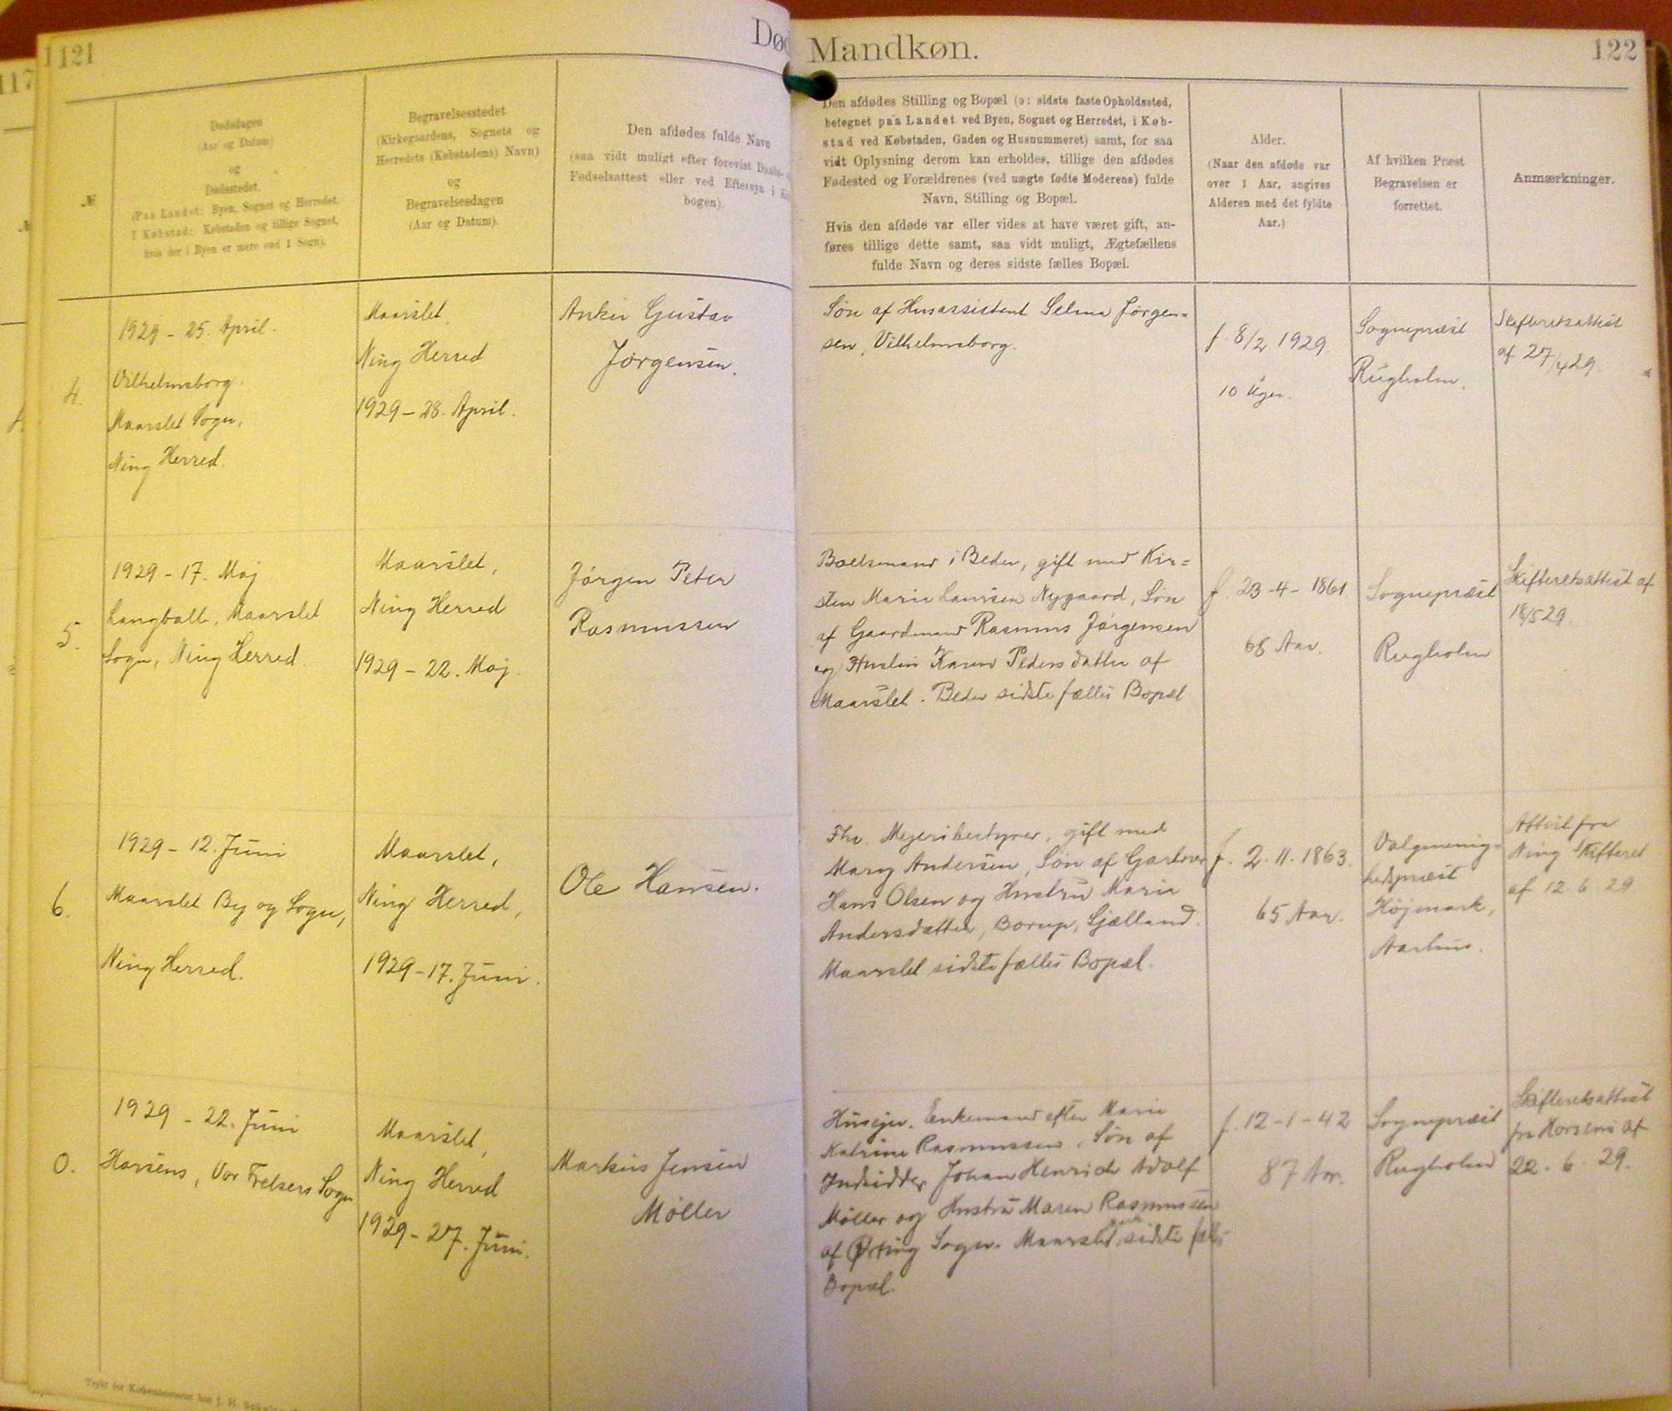 117
1121
Dø
Mandkøn.
122
№
Dødsdagen
(Aar og Datum)
og
Dødsstedet.
(Paa Landet: Byen, Sognet og Herredet.
I Købstad: Købstaden og tillige Sognet,
hvis der i Byen er mere end 1 Sogn).
Begravelsesstedet
(Kirkegaardens, Sognets og
Herredets (Købstadens) Navn)
og
Begravelsesdagen
(Aar og Datum).
Den afdødes fulde Navn
(saa vidt muligt efter forevist Daabs-
Fødselsattest eller ved Eftersyn i
bogen).
Den afdødes Stilling og Bopæl (ɔ: sidste faste Opholdssted,
betegnet paa Landet ved Byen, Sognet og Herredet, i Køb-
stad ved Købstaden, Gaden og Husnummeret) samt, for saa
vidt Oplysning derom kan erholdes, tillige den afdødes
Fødested og Forældrenes (ved uægte fødte Moderens) fulde
Navn, Stilling og Bopæl.
Hvis den afdøde var eller vides at have været gift, an-
føres tillige dette samt, saa vidt muligt, Ægtefællens
fulde Navn og deres sidste fælles Bopæl.
Alder.
(Naar den afdøde var
over 1 Aar, angives
Alderen med det fyldte
Aar.)
Af hvilken Præst
Begravelsen er
forrettet.
Anmærkninger.
4.
1929 - 25. April.
Vilhelmsborg.
Maarslet Sogn,
Ning Herred.
Maarslet.
Ning Herred
1929 - 28. April.
Anker Gustav
Jørgensen.
Søn af Husassistent Selma Jørgen=
sen, Vilhelmsborg.
f. 8/2 1929
10 Uger.
Sognepræst
Rugholm.
Skifteretsattest
af 27/4 29.
5.
1929 - 17. Maj
Langballe, Maarslet
Sogn, Ning Herred.
Maarslet,
Ning Herred
1929 - 22. Maj.
Jørgen Peter
Rasmussen
Boelsmand i Beder, gift med Kir=
sten Marie Laursen Nygaard, Søn
af Gaardmand Rasmus Jørgensen
og Hustru Karen Pedersdatter af
Maarslet. Beder sidste fælles Bopæl
f. 23-4-1861
68 Aar.
Sognepræst
Rugholm
Skifteretsattest af
18/5 29.
6.
1929 - 12. Juni
Maarslet By og Sogn,
Ning Herred.
Maarslet,
Ning Herred,
1929 - 17. Juni.
Ole Hansen.
Fhv. Mejeribestyrer, gift med
Mary Andersen, Søn af Gartner
Hans Olsen og Hustru Marie
Andersdatter, Borup, Sjælland.
Maarslet sidste fælles Bopæl.
f. 2.11.1863.
65 Aar.
Valgmenig=
hedspræst
Højmark,
Aarhus.
Attest fra
Ning Skifteret
af 12.6.29
0.
1929 - 22. Juni
Horsens, Vor Frelsers Sogn
Maarslet,
Ning Herred
1929 - 27. Juni.
Markus Jensen
Møller
Husejer. Enkemand efter Marie
Katrine Rasmussen. Søn af
Indsidder Johan Henrich Adolf
Møller og Hustru Maren Rasmussen
af Ørting Sogn. Maarslet sidste fælles
Bopæl.
f. 12-1-42
87 Aar.
Sognepræst
Rugholm
Skifteretsattest
fra Horsens af
22.6.29.